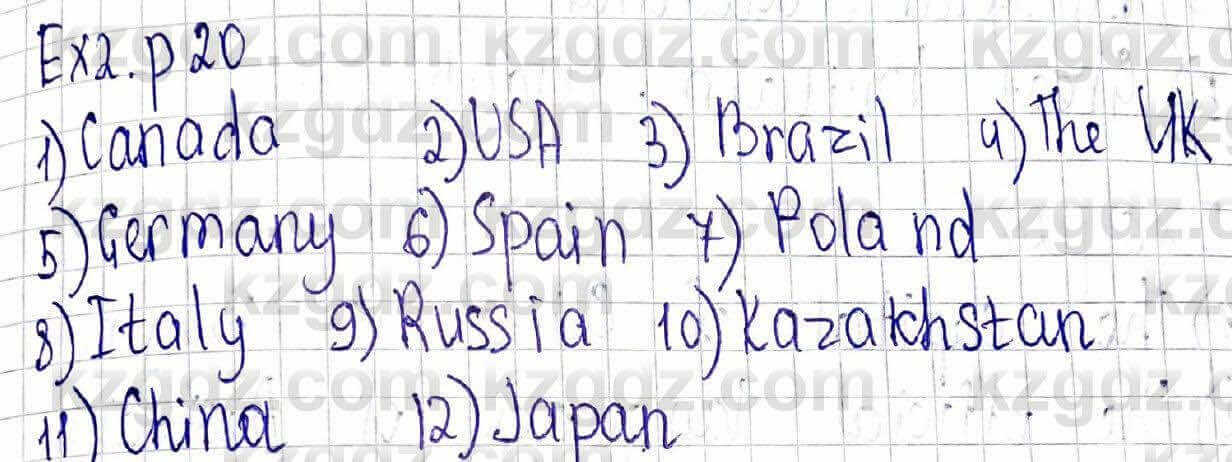 Ex2. p 20
1) Canada 2) USA 3) Brazil 4) The UK
5) Germany 6) Spain 7) Poland
8) Italy 9) Russia 10) Kazakhstan
11) China 12) Japan